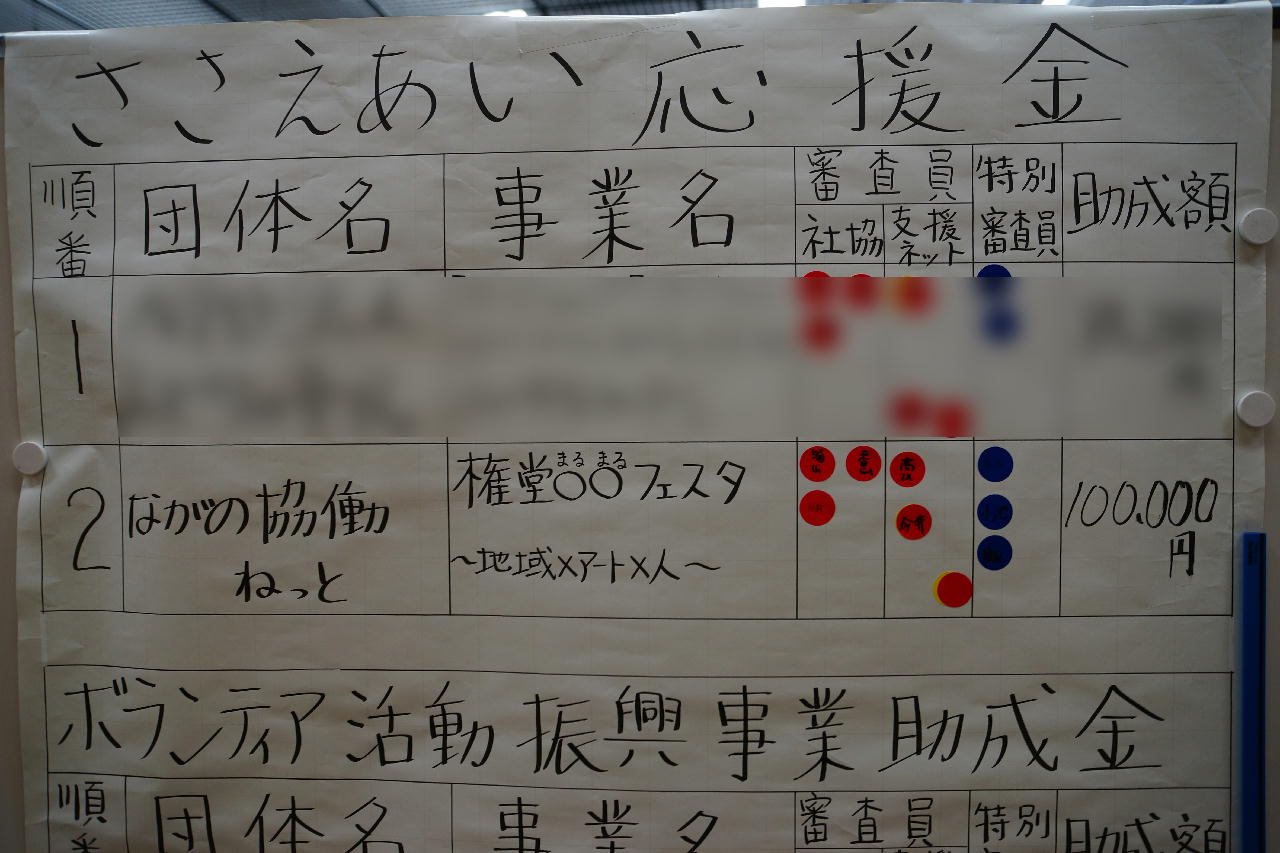 ささえあい応援金
順番
団体名
事業名
審査員
社協
支援ネット
特別審査員
助成額
1
2
ながの協働
ねっと
まる まる
権堂○○フェスタ
～地域×アート×人～
100.000
円
ボランティア活動振興事業助成金
順番
団体名
事業名
審査員
特別
助成額